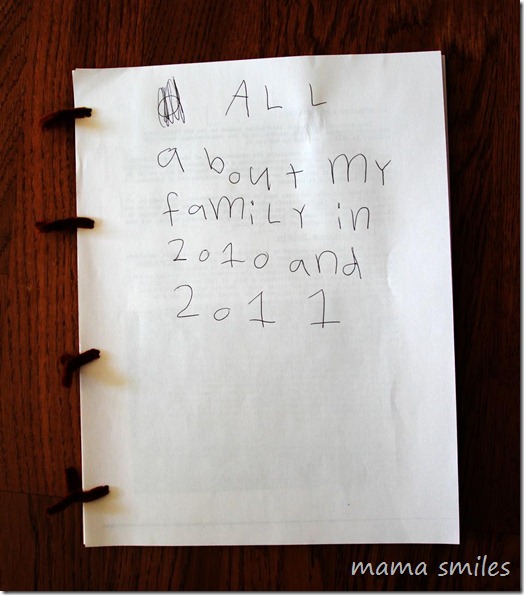 ALL
about my
family in
2010 and
2011
mama smiles